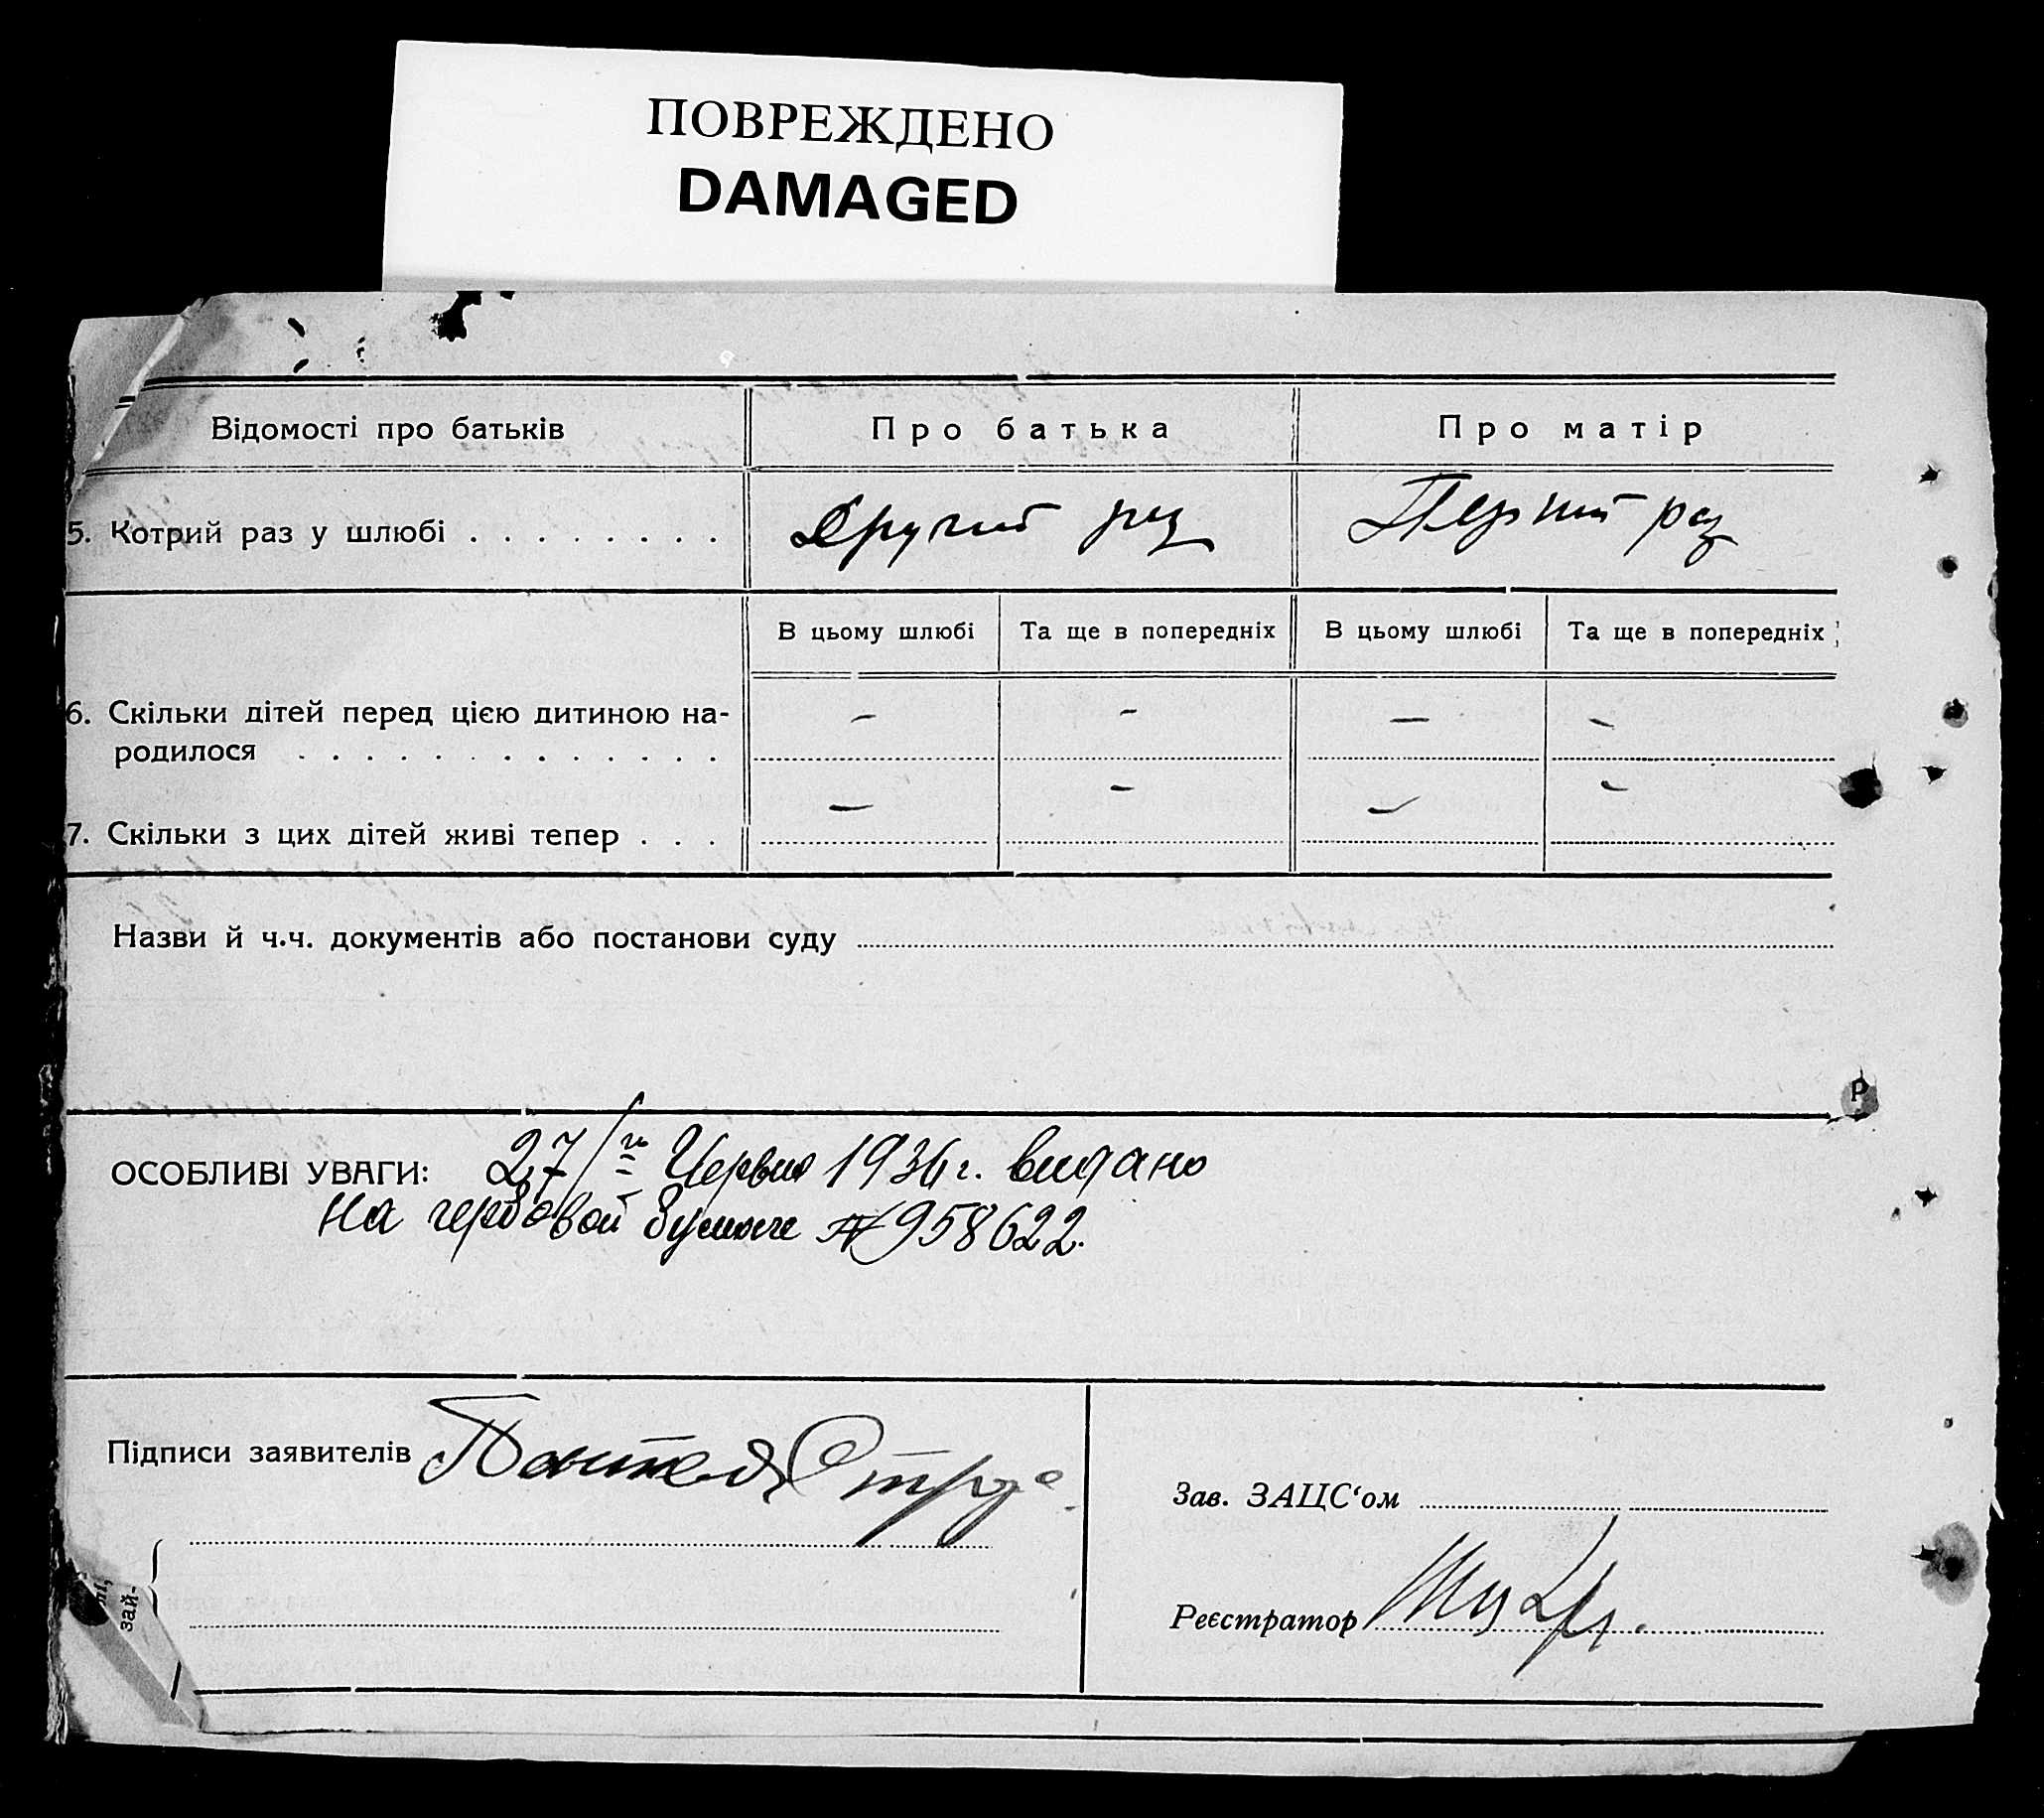 ПОВРЕЖДЕНО
DAMAGED
Відомості про батьків
Про батька
Про матір
5. Котрий раз у шлюбі . . . . . . . .
Другий раз
Перший раз
В цьому шлюбі
Та ще в попередніх
В цьому шлюбі
Та ще в попередніх
6. Скільки дітей перед цією дитиною на-
родилося . . . . . . . . . . . . .
– – – –
7. Скільки з цих дітей живі тепер . . .
– – – –
Назви й ч.ч. документів або постанови суду
ОСОБЛИВІ УВАГИ: 27/ Червня 1936 г. видано
На гербовой бумаге № 958622.
Підписи заявителів
Зав. ЗАЦС‘ом
Реєстратор
зай-